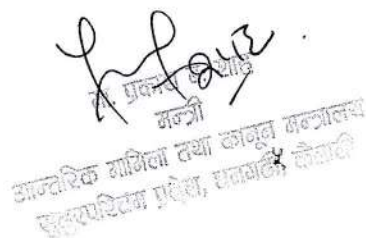 मा. प्रकाश
मन्त्री
आन्तरिक मामिला तथा कानून मन्त्रालय
सुदूरपश्चिम प्रदेश, धनगढी, कैलाली